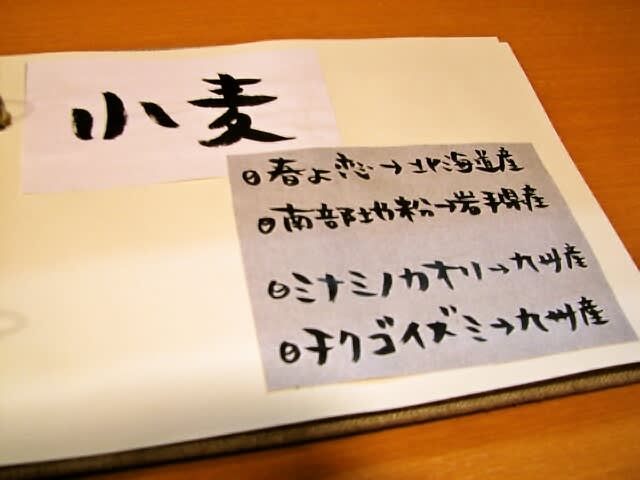 小麦
◎春よ恋→北海道産
◎南部地粉→岩手県産
◎ミナミノカオリ→九州産
◎チクゴイズミ→九州産